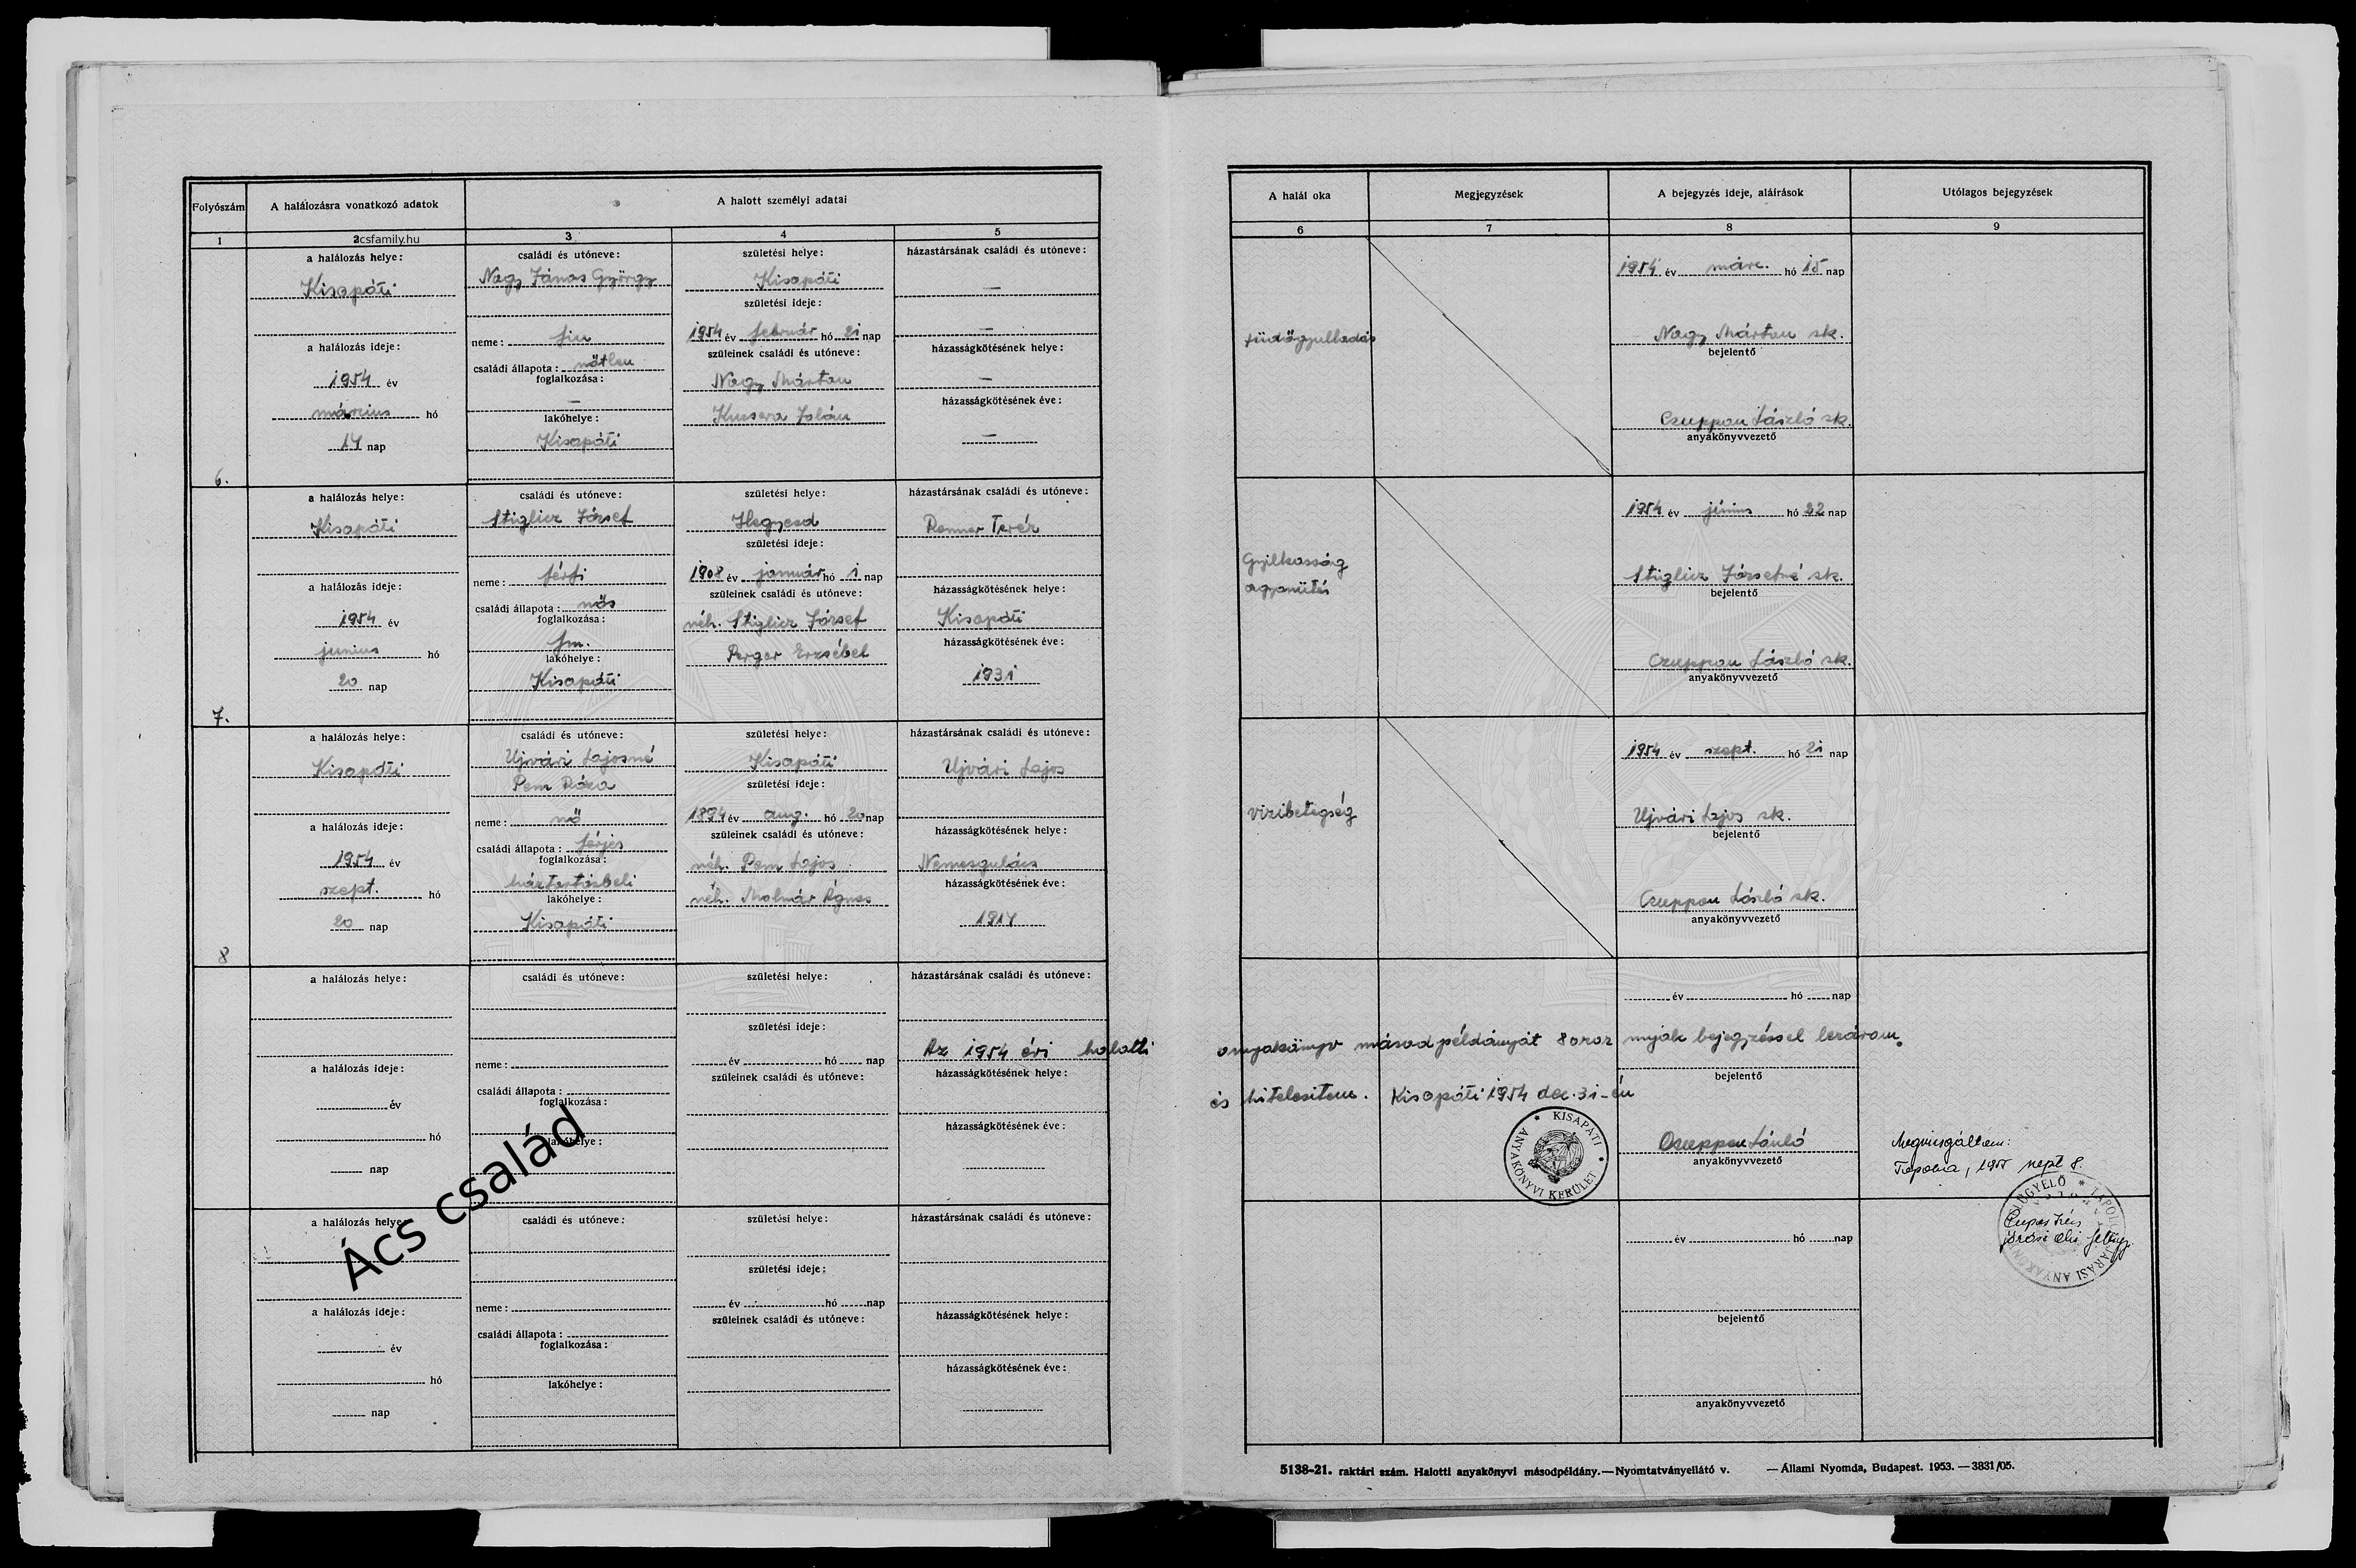 Folyószám
A halálozásra vonatkozó adatok
A halott személyi adatai
1
2csfamily.hu
3
4
5
a halálozás helye:
Kisapáti
a halálozás ideje:
1954 év
március hó
14 nap
6.
családi és utóneve:
Nagy János György
neme: fiu
családi állapota: nőtlen
foglalkozása:
—
lakóhelye:
Kisapáti
születési helye:
Kisapáti
születési ideje:
1954 év február hó 21 nap
szüleinek családi és utóneve:
Nagy Márton
Kucsera Jolán
házastársának családi és utóneve:
—
—
házasságkötésének helye:
—
házasságkötésének éve:
—
a halálozás helye:
Kisapáti
a halálozás ideje:
1954 év
junius hó
20 nap
7.
családi és utóneve:
Stiglicz József
neme: férfi
családi állapota: nős
foglalkozása:
fm.
lakóhelye:
Kisapáti
születési helye:
Hegyesd
születési ideje:
1908 év január hó 1 nap
szüleinek családi és utóneve:
néh. Stiglicz József
Perger Erzsébet
házastársának családi és utóneve:
Renner Teréz
házasságkötésének helye:
Kisapáti
házasságkötésének éve:
1931
a halálozás helye:
Kisapáti
a halálozás ideje:
1954 év
szept. hó
20 nap
8
családi és utóneve:
Ujvári Lajosné
Pem Róza
neme: nő
családi állapota: férjes
foglalkozása:
háztartásbeli
lakóhelye:
Kisapáti
születési helye:
Kisapáti
születési ideje:
1894 év aug. hó 20 nap
szüleinek családi és utóneve:
néh. Pem Lajos
néh. Molnár Ágnes
házastársának családi és utóneve:
Ujvári Lajos
házasságkötésének helye:
Nemesgulács
házasságkötésének éve:
1914
a halálozás helye:
a halálozás ideje:
év
hó
nap
családi és utóneve:
neme:
családi állapota:
foglalkozása:
lakóhelye:
születési helye:
születési ideje:
év hó nap
szüleinek családi és utóneve:
házastársának családi és utóneve:
Az 1954 évi halotti
házasságkötésének helye:
házasságkötésének éve:
Ács család
a halálozás helye:
a halálozás ideje:
év
hó
nap
családi és utóneve:
neme:
családi állapota:
foglalkozása:
lakóhelye:
születési helye:
születési ideje:
év hó nap
szüleinek családi és utóneve:
házastársának családi és utóneve:
házasságkötésének helye:
házasságkötésének éve:
A halál oka
Megjegyzések
A bejegyzés ideje, aláírások
Utólagos bejegyzések
6
7
8
9
tüdőgyulladás
1954 év márc. hó 15 nap
Nagy Márton sk.
bejelentő
Czuppon László sk.
anyakönyvvezető
Gyilkosság
agyonütés
1954 év június hó 22 nap
Stiglicz Józsefné sk.
bejelentő
Czuppon László sk.
anyakönyvvezető
vizibetegség
1954 év szept. hó 21 nap
Ujvári Lajos sk.
bejelentő
Czuppon László sk.
anyakönyvvezető
év hó nap
anyakönyv másodpéldányát 8 azaz nyolc bejegyzéssel lezárom
bejelentő
és hitelesitem. Kisapáti 1954 dec. 31-én
KISAPÁTI
ANYAKÖNYVI KERÜLET
Czuppon László
anyakönyvvezető
Megvizsgáltam:
Tapolca, 1955 szept 8.
járási
év hó nap
bejelentő
anyakönyvvezető
5138-21. raktári szám. Halotti anyakönyvi másodpéldány.—Nyomtatványellátó v. —Állami Nyomda, Budapest. 1953.—3831/05.